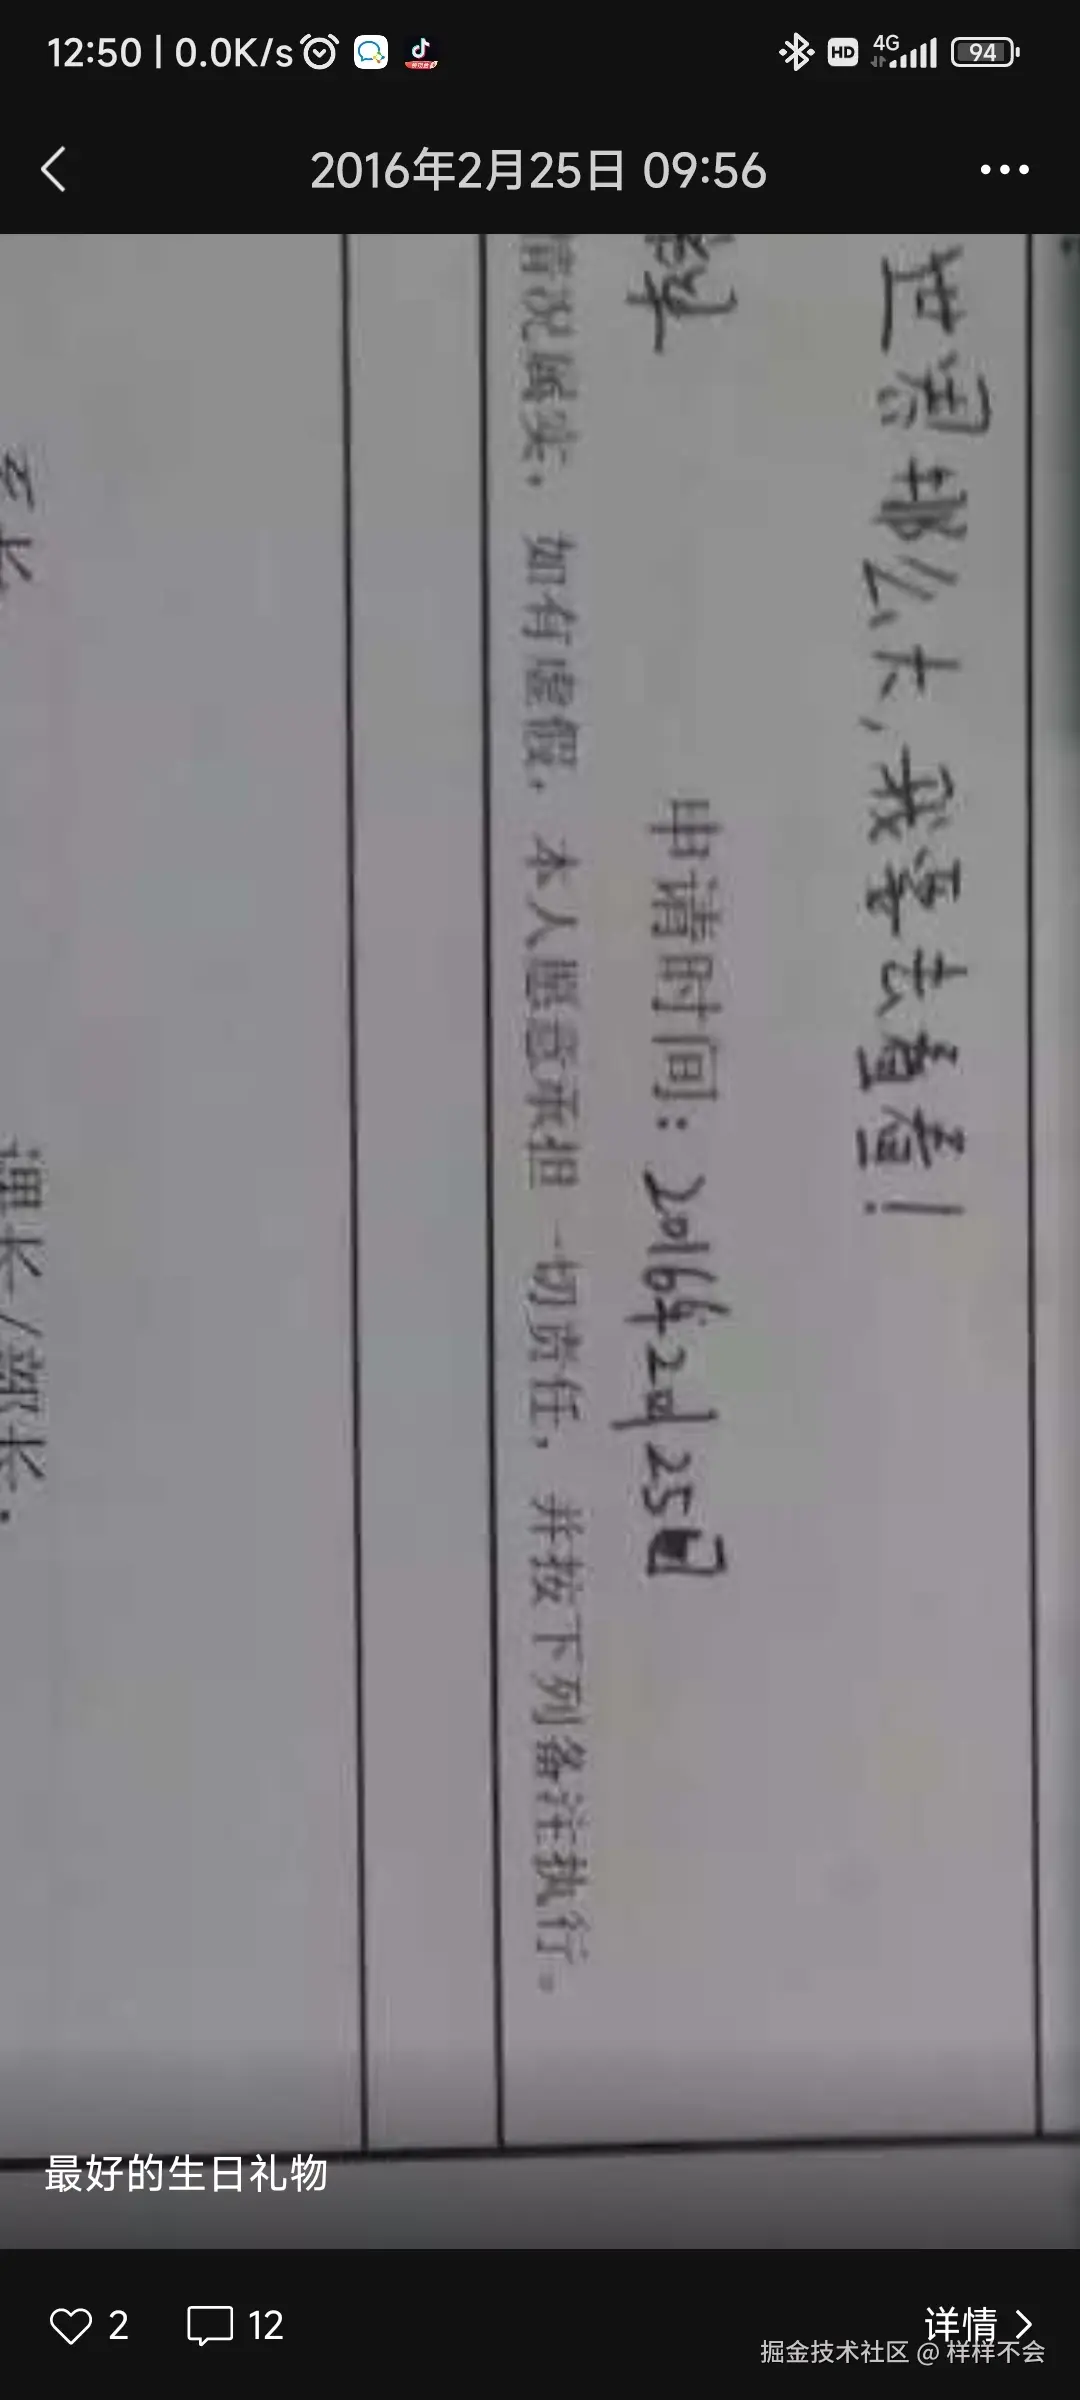 12:50 | 0.0K/s
HD 4G 94
2016年2月25日 09:56
世界那么大,我要去看看!
申请时间: 2016年2月25日
情况属实, 如有虚假, 本人愿意承担一切责任, 并按下列备注执行。
课长/部长:
最好的生日礼物
2
12
详情
掘金技术社区 @ 样样不会